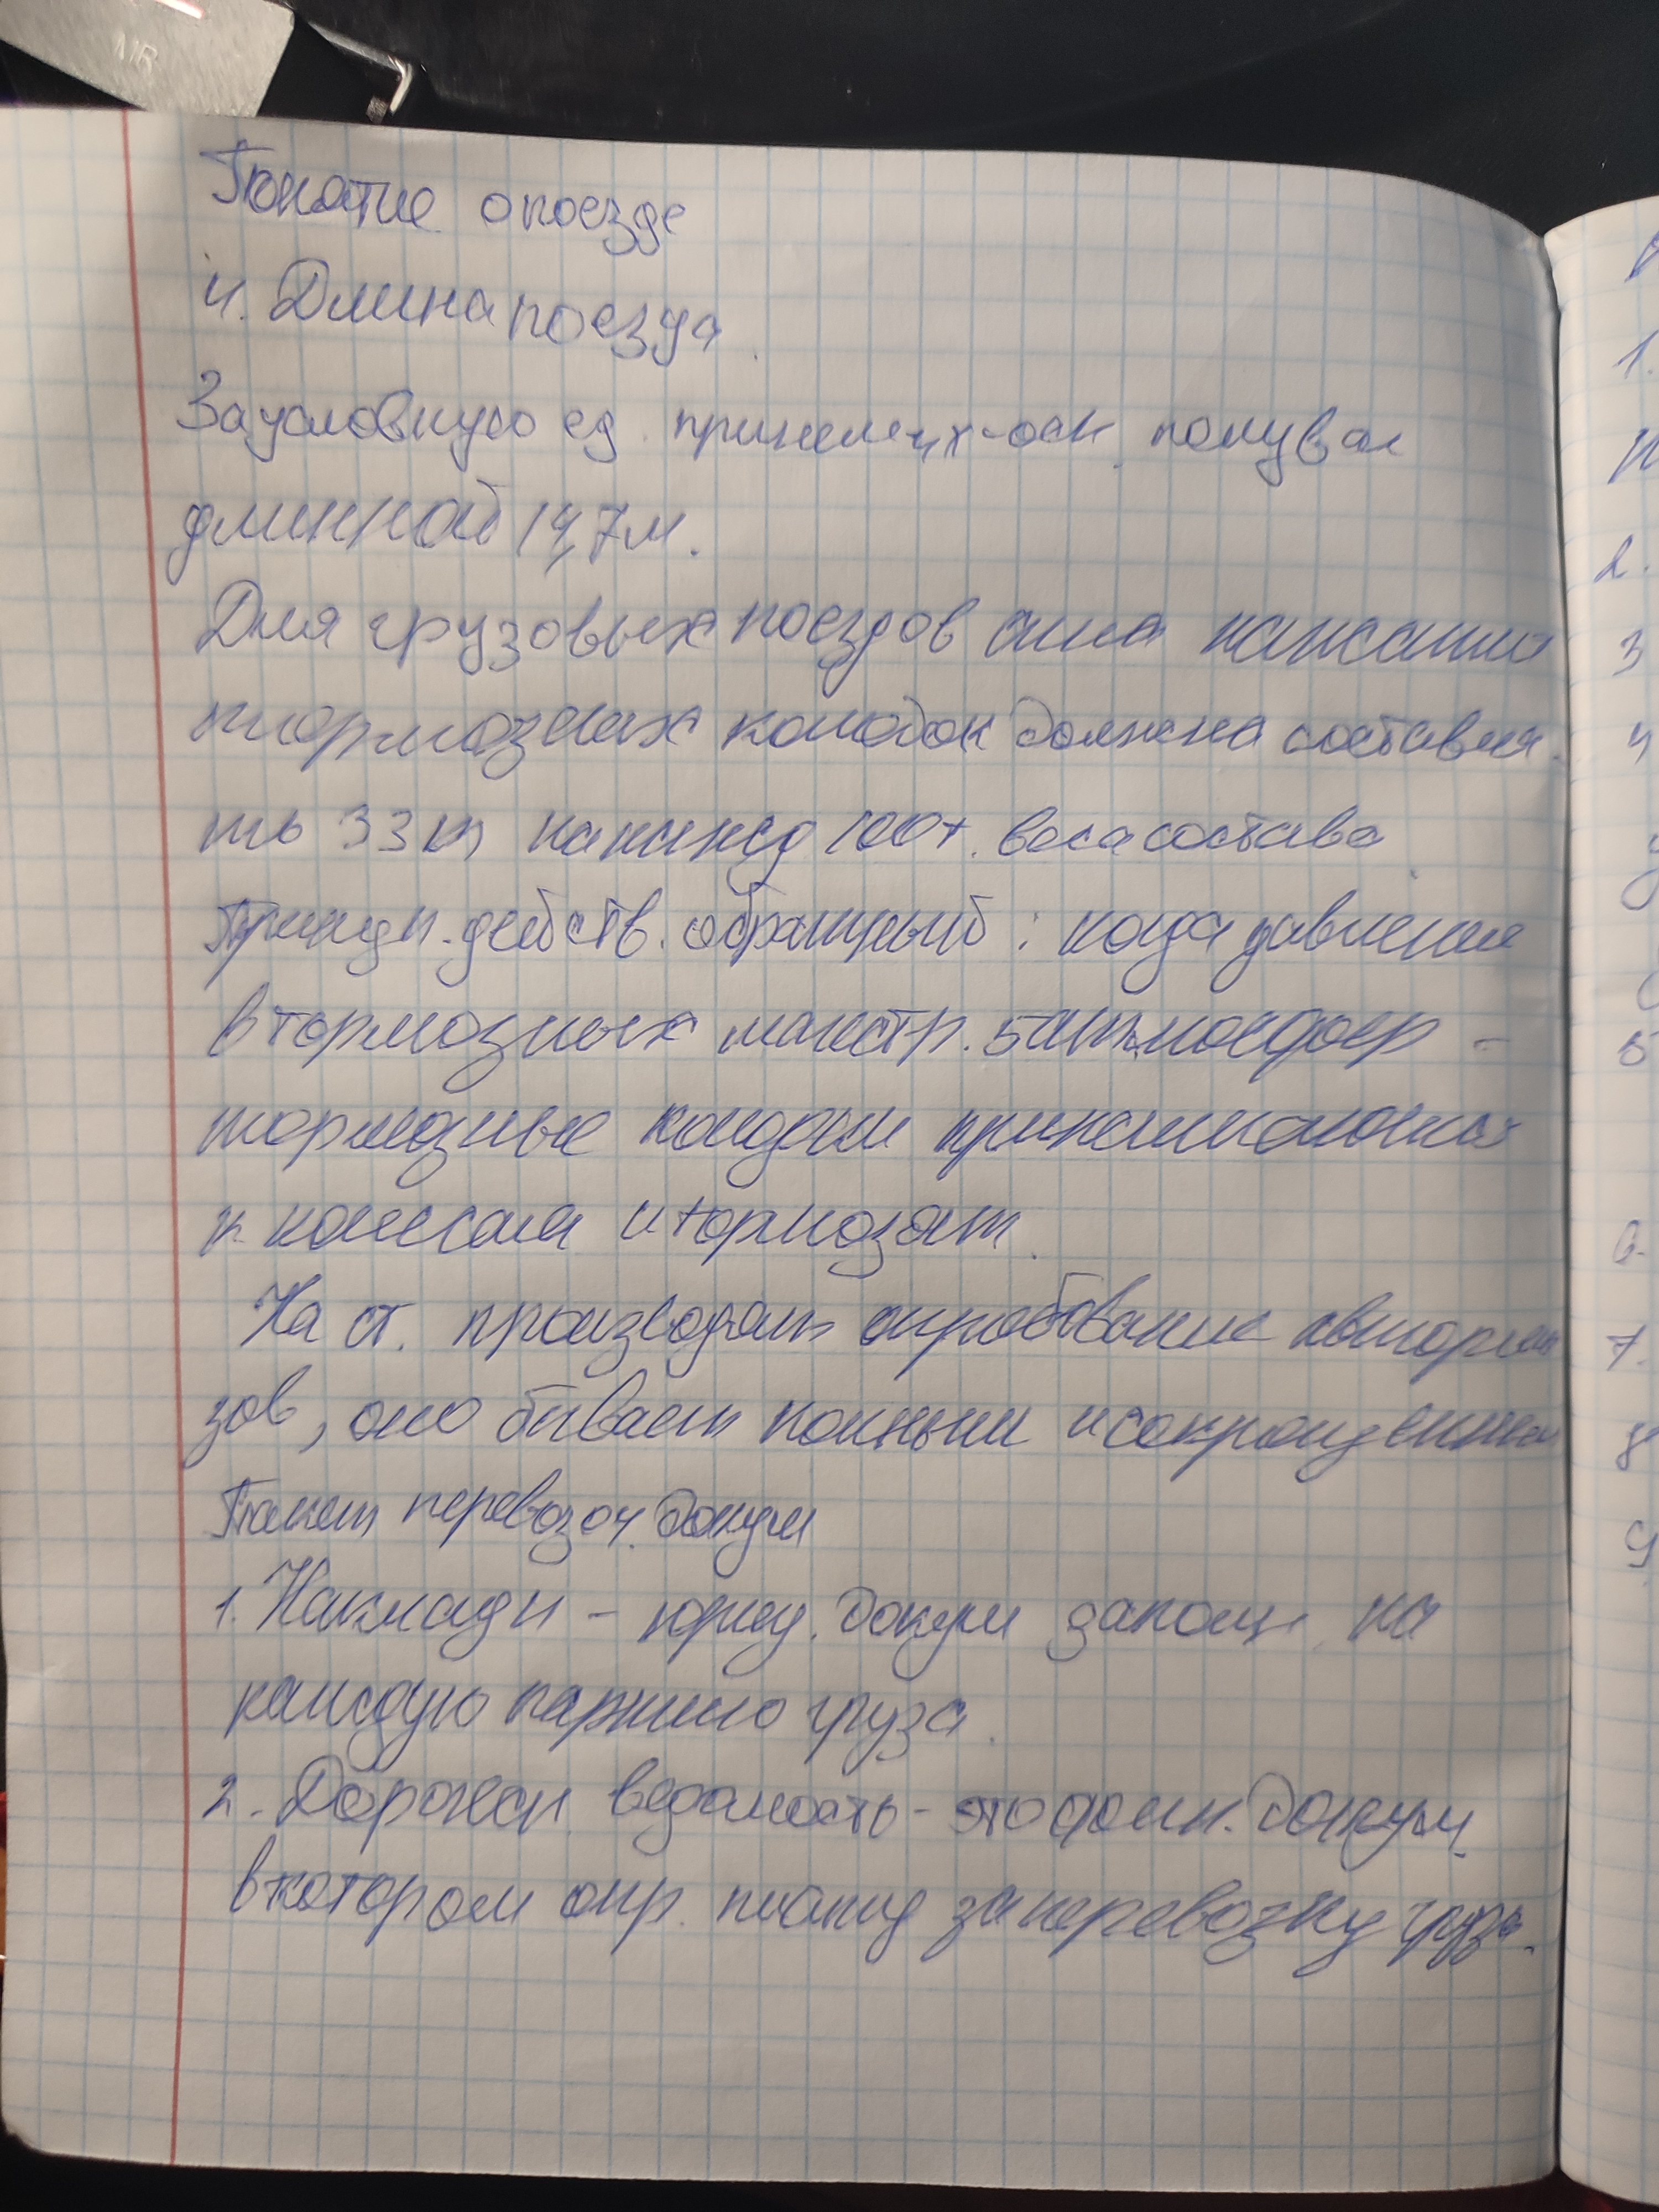 MR
Понятие о поезде
4. Длина поезда
За условную ед. 4х-осн. полуваг
длинной 14,7м.
Для грузовых поездов сила нажатия
тормозных колодок должна составля
ть 33т на кажд 100т. веса состава
Принцип. действ. обратный: когда давление
в тормозных магистр. 5
тормозные колодки прижимаются
к колесам и тормозят.
На ст. производят опробование автормо
зов, оно бывает полным и сокращенным
Пакет перевозоч. докум
1. Накладн - юрид. докум заполн. на
каждую партию груза.
2. Дорожн. ведомость - это фин. докум.
в котором опр. плату за перевозку груза.
1.
2.
3
4
5
6.
7.
8
9